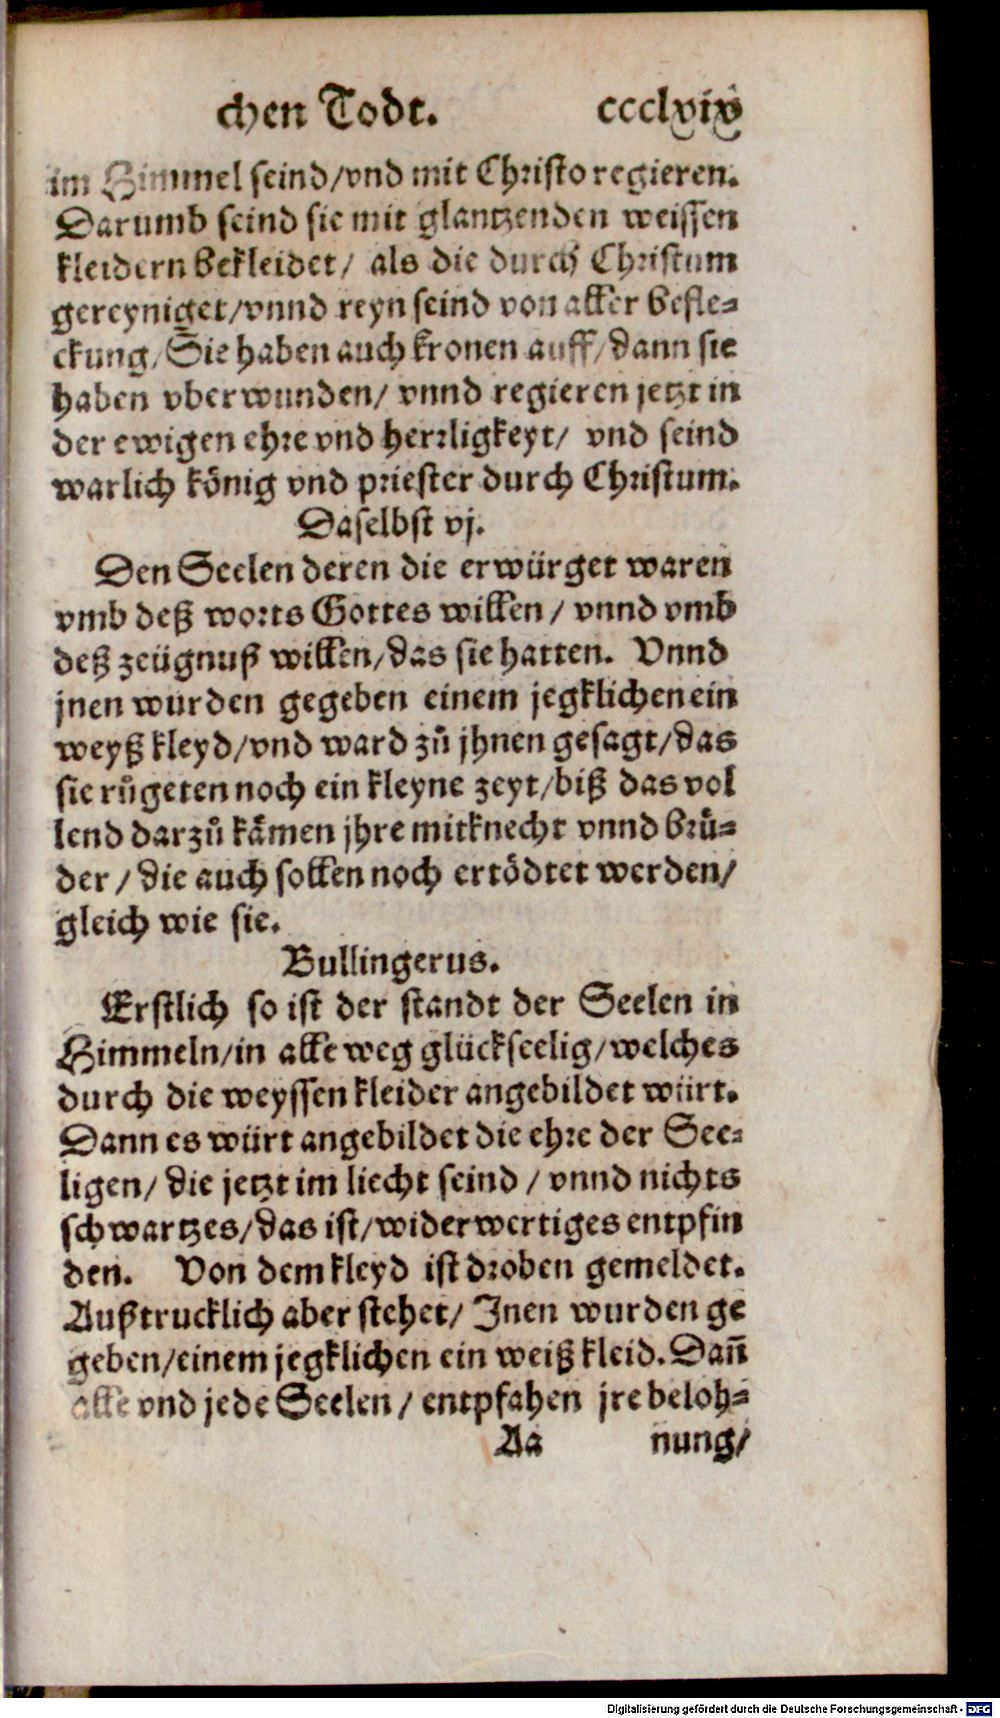 chen Todt. ccclxix
im Himmel seind/vnd mit Christo regieren.
Darumb seind sie mit glantzenden weissen
kleidern bekleidet/ als die durch Christum
gereyniget/vnnd reyn seind von aller befle-
ckung/ Sie haben auch kronen auff/dann sie
haben vberwunden/ vnnd regieren jetzt in
der ewigen ehre vnd herrligkeyt/ vnd seind
warlich kônig vnd priester durch Christum.
Daselbst vj.
Den Seelen deren die erwürget waren
vmb deß worts Gottes willen/ vnnd vmb
deß zeügnuß willen/das sie hatten. Vnnd
jnen wurden gegeben einem jegklichen ein
weyß kleyd/vnd ward zů jhnen gesagt/das
sie růgeten noch ein kleyne zeyt/biß das vol
lend darzů kåmen jhre mitknecht vnnd brů-
der/ die auch sollen noch ertödtet werden/
gleich wie sie.
Bullingerus.
Erstlich so ist der standt der Seelen in
Himmeln/in alle weg glückseelig/welches
durch die weyssen kleider angebildet würt.
Dann es würt angebildet die ehre der See-
ligen/ die jetzt im liecht seind/ vnnd nichts
schwartzes/das ist/widerwertiges entpfin
den. Von dem kleyd ist droben gemeldet.
Außtrucklich aber stehet/ Jnen wurden ge
geben/einem jegklichen ein weiß kleid. Dañ
alle vnd jede Seelen/ entpfahen jre beloh-
Aa nung/
Digitalisierung gefördert durch die Deutsche Forschungsgemeinschaft - DFG